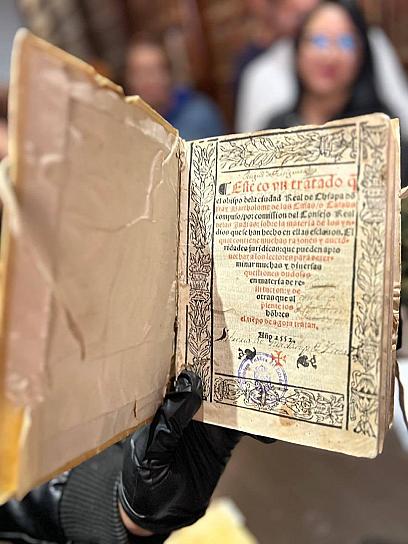 ¶ Este es vn tratado q̃
el obispo dela ciudad Real de Chiapa dõ
fray Bartholome de las Casas/o Casaus
compuso/por comission del Consejo Real
delas Indias: sobre la materia de los yn
dios que se han hecho en ellas esclauos. El
qual contiene muchas razones y aucto
ridades juridicas: que pueden apro
uechar a los lectores para deter
minar muchas y diuersas
questiones dudosas
en materia de re
stitucion: y de
otras que al
presente los
hõbres
el tiẽpo de agora tratan.
Año 1552.